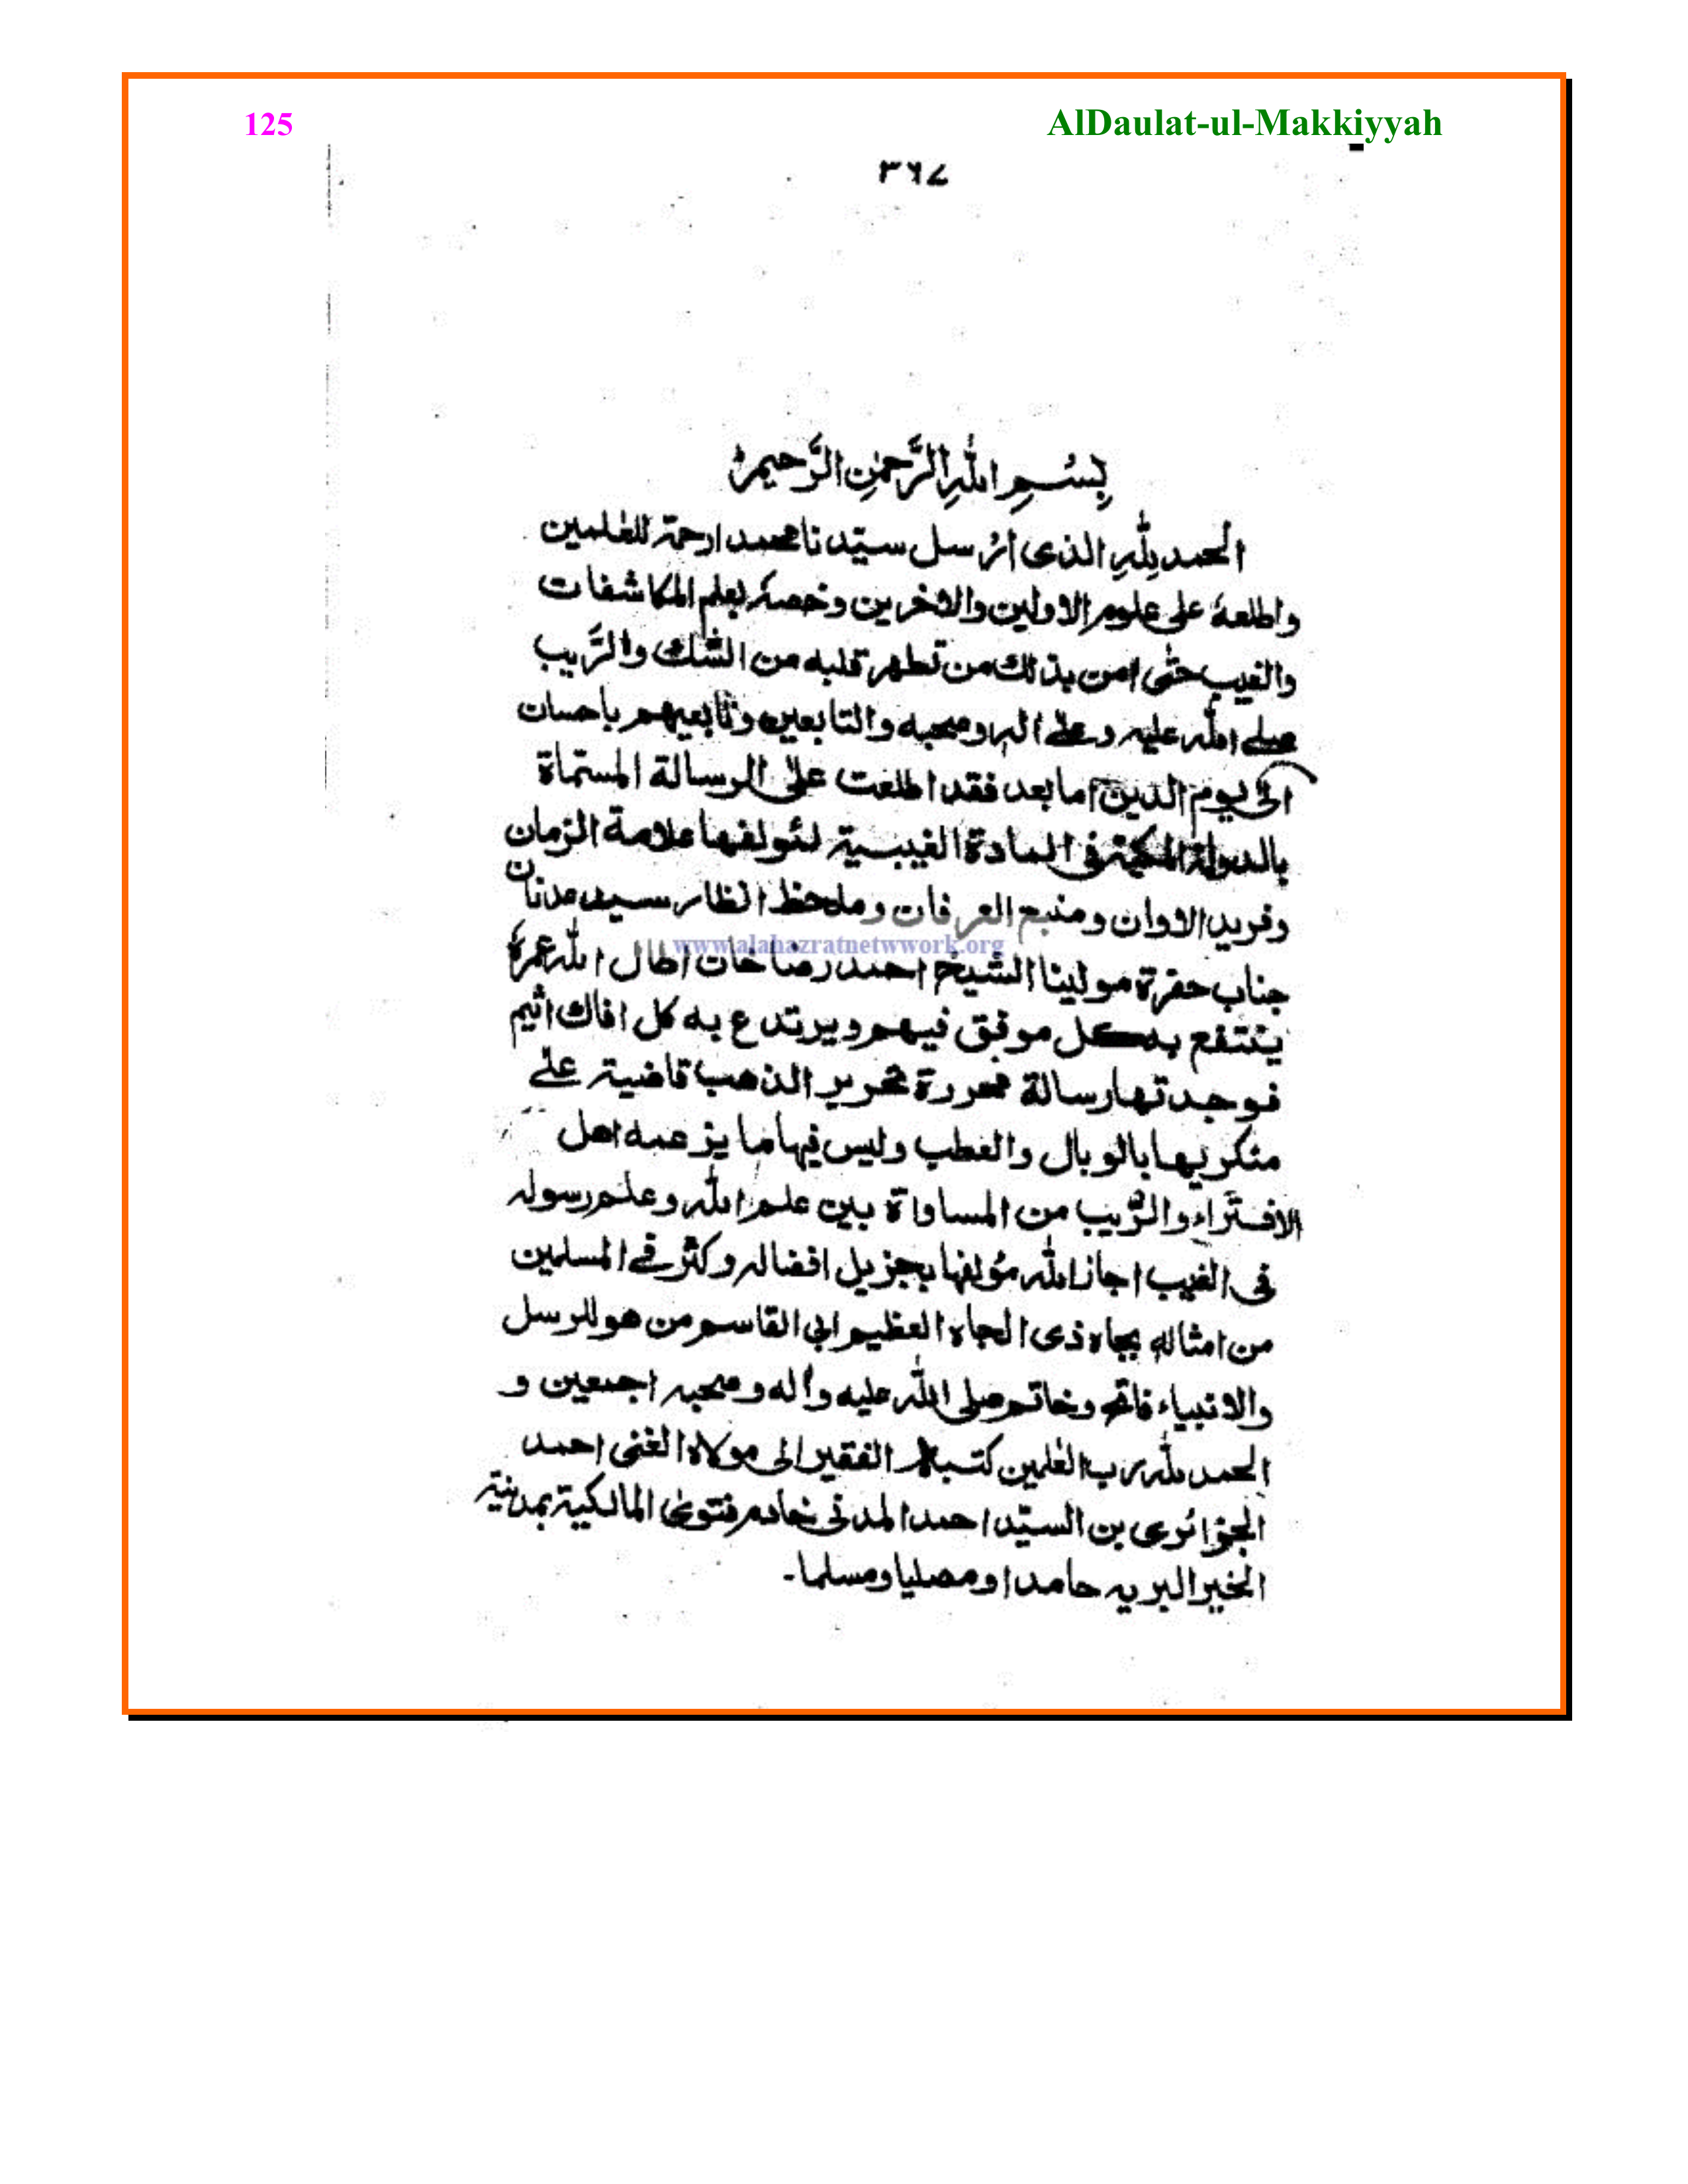 125 AlDaulat-ul-Makkiyyah
٣٦٧
بِسْمِ اللهِ الرَّحمٰنِ الرَّحیم
الحمد لِلّٰهِ الذی ارسل سیّدنا محمدا رحمة للعٰلمین
واطلعهٗ علی علوم الاولین والاٰخرین وخصه بعلم المکاشفات
والغیب حتّٰی اٰمن بذٰلك من تطهر قلبه من الشك والرَّیب
صلے الله علیه وعلےٰ اٰله وصحبه والتابعین وتابعیهم باحسان
الیٰ یوم الدین اما بعد فقد اطلعت علی الرسالة المستماة
بالدولة المکیة فی المادة الغیبیة لمؤلفها علامة الزمان
وفرید الاوان ومنبع العرفان وملحظ انظار سید عدنان
www.alahazratnetwwork.org
جناب حضرة مولینا الشیخ احمد رضا خان اطال الله عمرهٗ
ینتفع به کل موفق فیهم ویرتدع به کل افاك اثیم
فوجدتها رسالة محررة تحریر الذهب قاضیة علے
منکریها بالوبال والعطب ولیس فیها ما یزعمه اهل
الافتراء والرَّیب من المساواة بین علم الله وعلم رسوله
فی الغیب اجاز الله مؤلفها بجزیل افضاله وکثر فے المسلمین
من امثاله بجاه ذی الجاه العظیم ابی القاسم من هو للرسل
والانبیاء فاتح وخاتم صلی الله علیه واٰله وصحبه اجمعین و
الحمد لله رب العٰلمین کتبه الفقیر الی مولاه الغنی احمد
الجزائری بن السیّد احمد المدنی خادم فتوی المالکیة بمدینة
الخیر البریه حامدا ومصلیا ومسلما۔